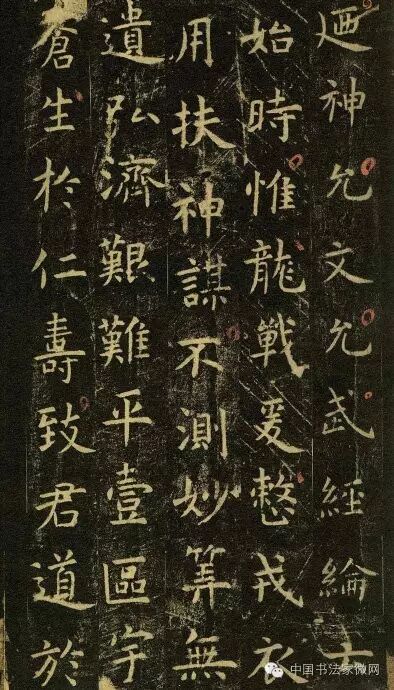 迺神允文允武經綸
始時惟龍戰爰慗戎衣
用扶神謀不測妙筭無
遺弘濟艱難平壹區宇
蒼生於仁壽致君道於
中国书法家微网